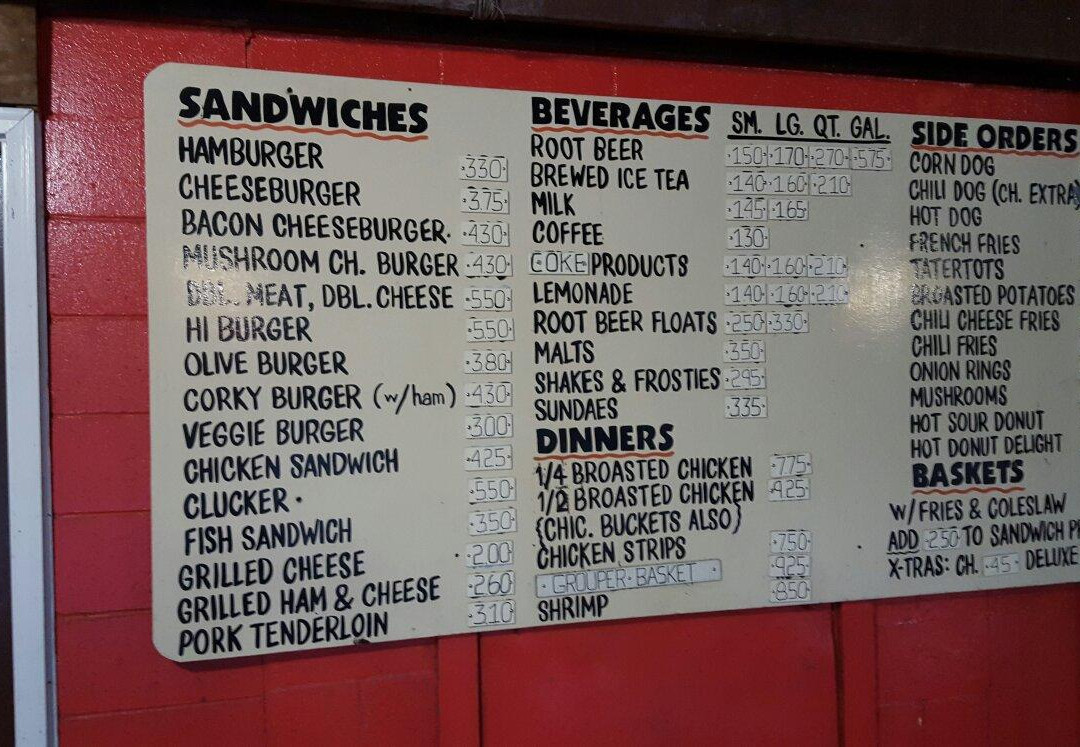 SANDWICHES
HAMBURGER 330
CHEESEBURGER 375
BACON CHEESEBURGER 430
MUSHROOM CH. BURGER 430
DBL. MEAT, DBL. CHEESE 550
HI BURGER 550
OLIVE BURGER 380
CORKY BURGER (w/ham) 430
VEGGIE BURGER 300
CHICKEN SANDWICH 425
CLUCKER 550
FISH SANDWICH 350
GRILLED CHEESE 2.00
GRILLED HAM & CHEESE 2.60
PORK TENDERLOIN 3.10
BEVERAGES SM. LG. QT. GAL.
ROOT BEER 150 170 270 575
BREWED ICE TEA 140 160 210
MILK 145 165
COFFEE 130
COKE PRODUCTS 140 160 210
LEMONADE 140 160 210
ROOT BEER FLOATS 250 330
MALTS 350
SHAKES & FROSTIES 295
SUNDAES 335
DINNERS
1/4 BROASTED CHICKEN 775
1/2 BROASTED CHICKEN 925
(CHIC. BUCKETS ALSO)
CHICKEN STRIPS 750
GROUPER BASKET 925
SHRIMP 850
SIDE ORDERS
CORN DOG
CHILI DOG (CH. EXTRA)
HOT DOG
FRENCH FRIES
TATERTOTS
BROASTED POTATOES
CHILI CHEESE FRIES
CHILI FRIES
ONION RINGS
MUSHROOMS
HOT SOUR DONUT
HOT DONUT DELIGHT
BASKETS
W/FRIES & COLESLAW
ADD 250 TO SANDWICH
X-TRAS: CH. 45 DELUXE